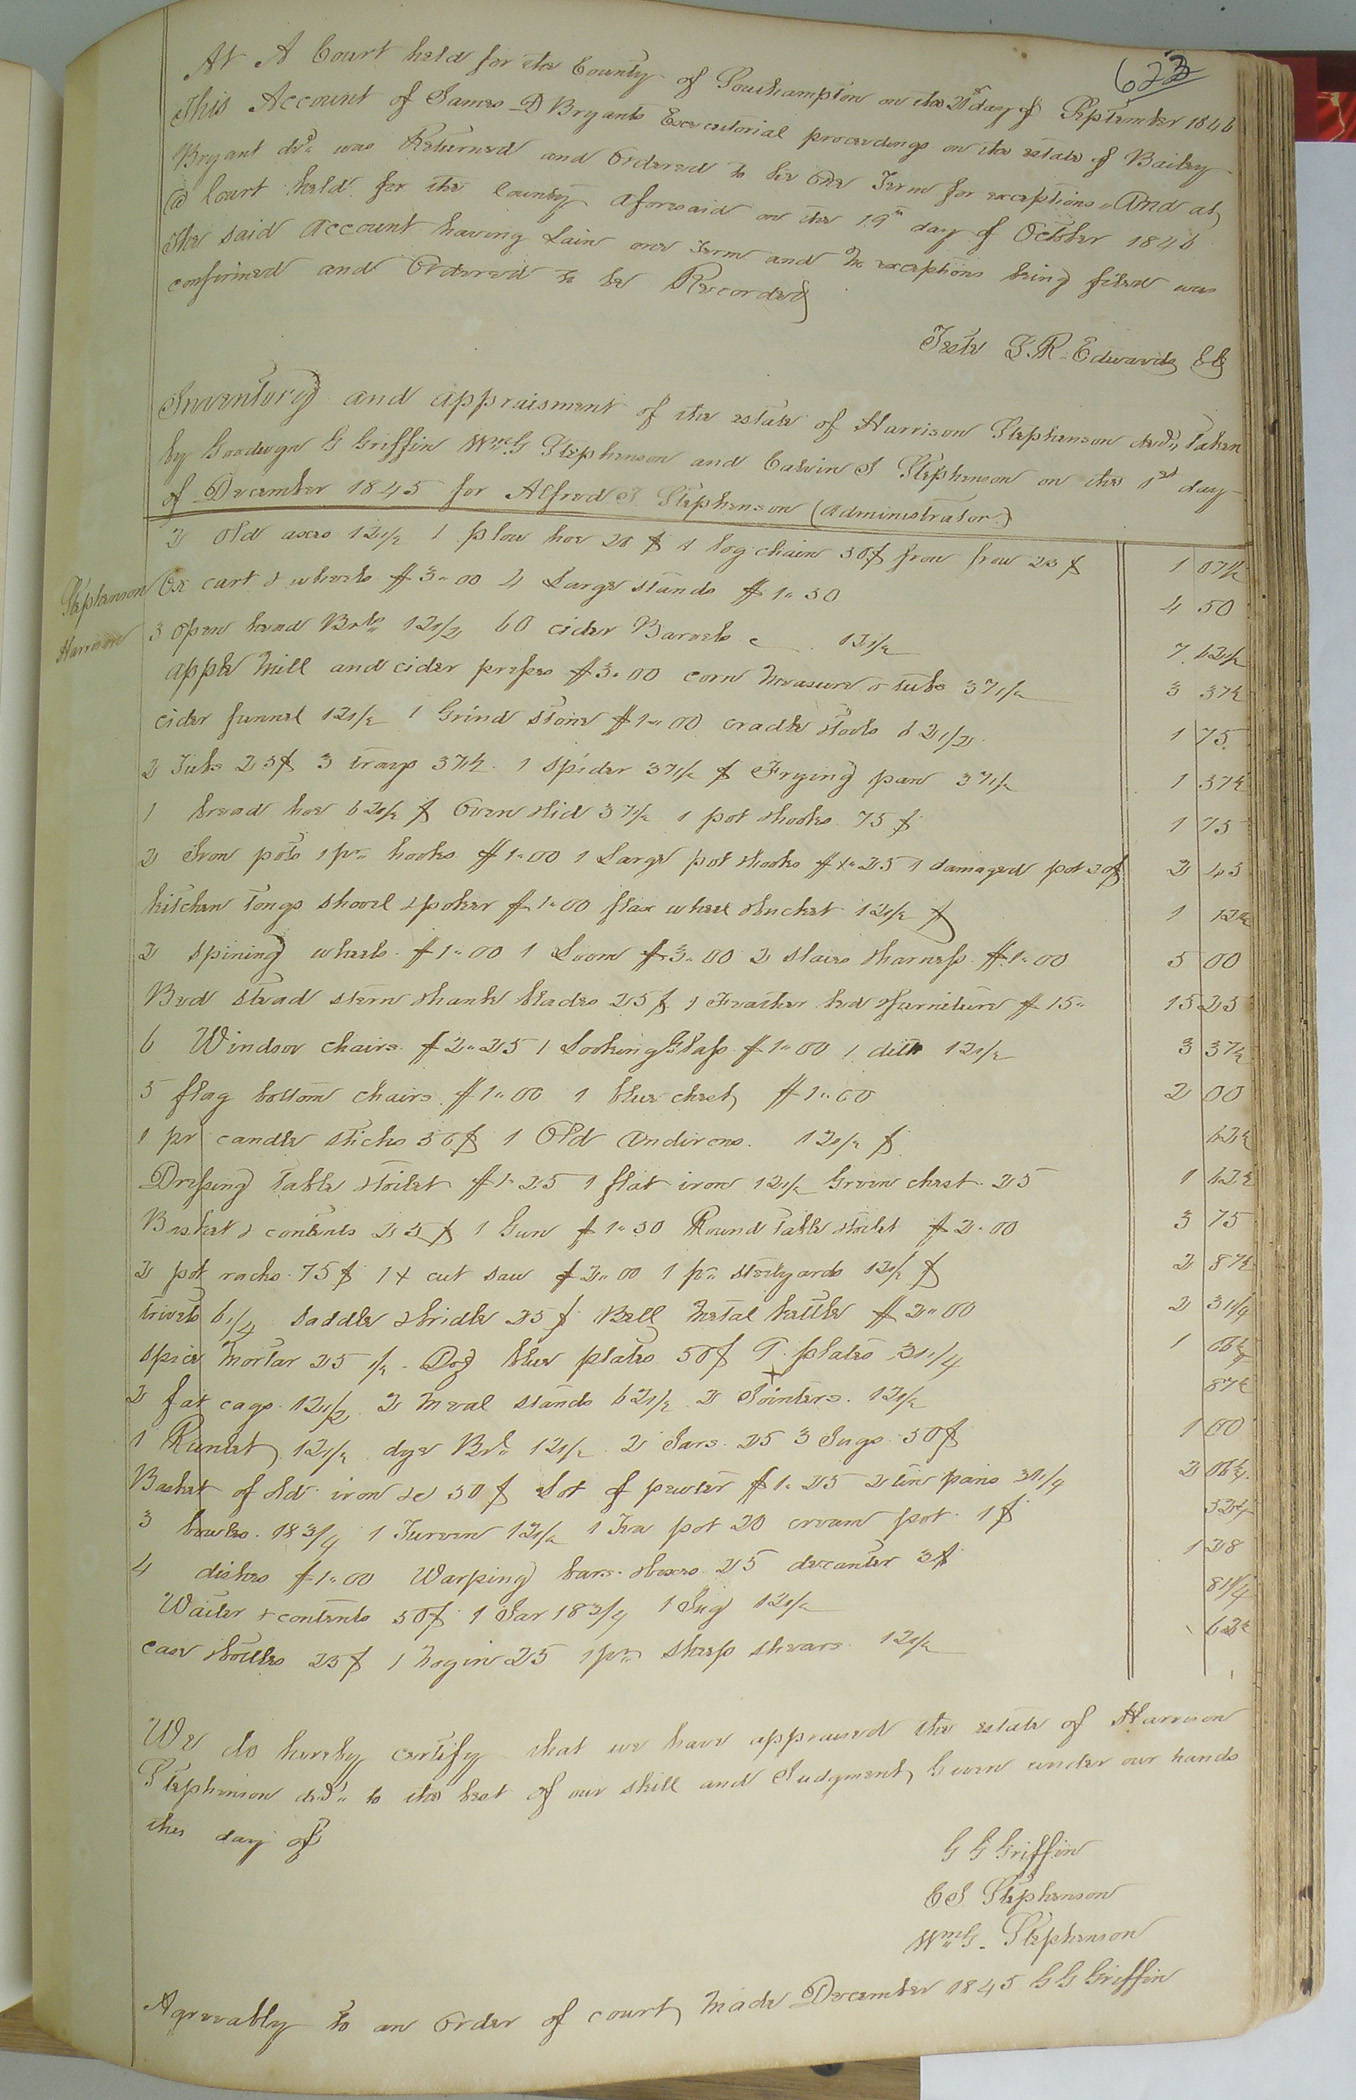 623
At A Court held for the County of Southampton on the 21st day of September 1846
This Account of James D Bryants Executorial proceedings on the estate of Bailey
Bryant decd. was Returned and Ordered to lie one Term for exceptions. And at
a Court held for the County aforesaid on the 19th day of October 1846
The said account having Lain one Term and no exceptions being filed was
confirmed and Ordered to be Recorded
Teste L. R. Edwards CC
Inventory and appraisment of the estate of Harrison Stephenson decd., taken
by Goodwyn G Griffin Wm. G Stephenson and Calvin S Stephenson on the 1st day
of December 1845 for Alfred S Stephenson (Administrator)
2 Old axes 12 1/2 1 plow hoe 20 ¢ 1 log chain 50¢ frow 25 ¢ 1 07 1/2
Stephenson Ox cart & wheels $3.00 4 Large stands $1.50 4 50
Harrison 3 Open head Brls 12 1/2 60 cider Barrels 12 1/2 7 62 1/2
Apple Mill and cider presses $3.00 corn measure & tubs 37 1/2 3 37 1/2
cider funnel 12 1/2 1 Grind stone $1.00 cradle & tools 62 1/2 1 75
2 Tubs 25¢ 3 trays 37 1/2 1 spider 37 1/2 ¢ Frying pan 37 1/2 1 37 1/2
1 broad hoe 62 1/2 ¢ Oven & lid 37 1/2 1 pot & hooks 75 ¢ 1 75
2 Iron pots 1 pr. hooks $1.00 1 Large pot & hooks $1.25 1 damaged pot 20¢ 2 45
kitchen tongs shovel & poker $1.00 flax wheel & bucket 12 1/2 ¢ 1 12 1/2
2 spining wheels $1.00 1 Loom $3.00 2 slaies & harness $1.00 5 00
Bed stead stern & hank blades 25 ¢ 1 Feather bed & furniture $15. 15 25
6 Windsor chairs $2.25 1 Looking Glass $1.00 1 ditto 12 1/2 3 37 1/2
5 flag bottom chairs $1.00 1 blue chest $1.00 2 00
1 pr candle sticks 50¢ 1 Old Andirons 12 1/2 ¢ 62 1/2
Dressing table & toilet $1.25 1 flat iron 12 1/2 Green chest 25 1 62 1/2
Basket & contents 25 ¢ 1 Gun $1.50 Round table & toilet $2.00 3 75
2 pot racks 75 ¢ 1 + cut saw $2.00 1 pr. steelyards 12 1/2 ¢ 2 87 1/2
trivets 6 1/4 saddle & bridle 25 ¢ Bell metal kettle $2.00 2 31 1/4
spice Mortar 25 Doz blue plates 50¢ 9 plates 31 1/4 1 06 1/4
2 fat cags 12 1/2 2 meal stands 62 1/2 2 Jointers 12 1/2 87 1/2
1 Runlet 12 1/2 dye Brl. 12 1/2 2 Jars 25 3 Jugs 50¢ 1 00
Basket of old iron &c 50 ¢ Lot of pewter $1.25 2 tin pans 31 1/4 2 06 1/4
3 bowles 18 3/4 1 Tureen 12 1/2 1 Tea pot 20 cream pot 1 ¢ 52 1/4
4 dishes $1.00 Warping bars & boxes 25 decanter 3¢ 1 28
Waiter & contents 50¢ 1 Jar 18 3/4 1 Jug 12 1/2 81 1/4
case & bottles 25 ¢ 1 Nogin 25 1 pr. sheep shears 12 1/2 62 1/2
We do hereby certify that we have appraised the estate of Harrison
Stephenson decd. to the best of our skill and Judgment, Given under our hands
this day of
G G Griffin
C S Stephenson
Wm. G. Stephenson
Agreeably to an Order of court made December 1845 G G Griffin